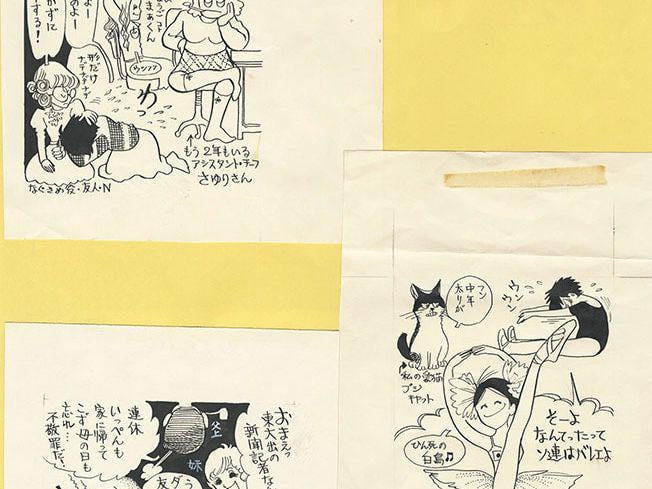 のよー
がずに
する!
まぁくん
形だけ
ナデナデナデ
わっ
もう2年もいる
アシスタント・チーフ
さゆりさん
なぐさめ役・友人・N
フン
中年
太りが
ウン
ウン
私の愛猫
プシ
キャット
そーよ
なんてったって
ソ連はバレエよ
ひん死の
白鳥♫
おまえっ
東大出の
新聞記者な
妹
友
連休
いっぺんも
家に帰って
こず母の日も
忘れ…
不敬罪だ!